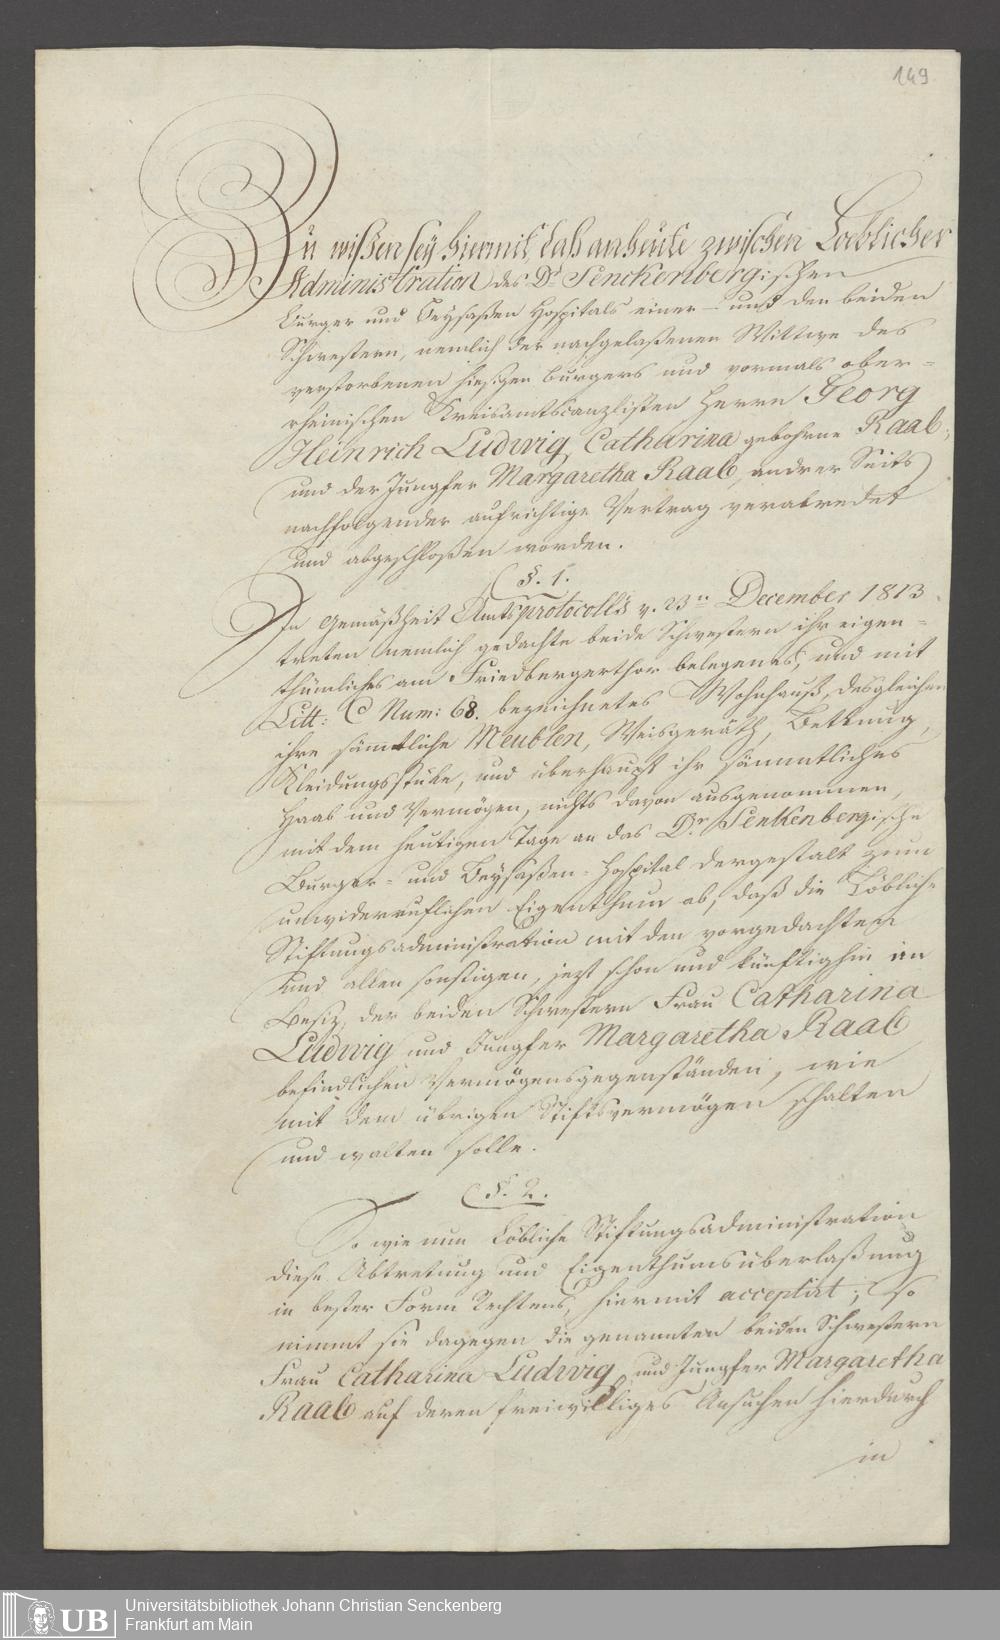 149
Zu wißen sey hiermit, daß anheute zwischen Loeblicher
Administration des Dr. Senckenbergischen
Burger und Beysaßen Hospitals einer- und den beiden
Schwestern, nemlich der nachgelaßenen Wittwe des
verstorbenen hiesigen Burgers und vormals ober-
rheinischen Kreisamtscanzlisten Herrn Georg
Heinrich Ludwig, Catharina gebohrne Raab,
und der Jungfer Margaretha Raab, andrer Seits
nachfolgender aufrichtige Vertrag verabredet
und abgeschloßen worden.
§. 1.
In Gemäßheit Amtsprotocolls v. 23n December 1813.
treten nemlich gedachte beide Schwestern ihr eigen-
thümliches am Friedbergerthor belegenes, und mit
Litt: C Num: 68. bezeichnetes Wohnhauß, desgleichen
ihre sämmtliche Meublen, Weisgeräth, Bettung,
Kleidungsstüke, und überhaupt ihr sämmtliches
Haab und Vermögen, nichts davon ausgenommen,
mit dem heutigen Tage an das Dr. Senkenbergische
Burger- und Beysaßen-Hospital dergestalt zum
unwiderruflichen Eigenthum ab, daß die Löbliche
Stiftungsadministration mit den vorgedachten
und allen sonstigen, jezt schon und künftighin im
Besiz der beiden Schwestern Frau Catharina
Ludwig und Jungfer Margaretha Raab
befindlichen Vermögensgegenständen, wie
mit dem übrigen Stiftsvermögen schalten
und walten solle.
§. 2.
So wie nun Löbliche Stiftungsadministration
diese Abtretung und Eigenthumsüberlaßung
in bester Form Rechtens, hiermit acceptirt; so
nimmt sie dagegen die genannten beiden Schwestern
Frau Catharina Ludwig und Jungfer Margaretha
Raab auf deren freiwilliges Ansuchen hierdurch
in
UB
Universitätsbibliothek Johann Christian Senckenberg
Frankfurt am Main